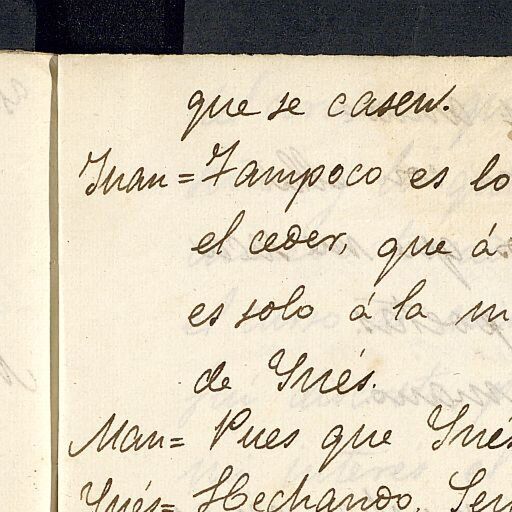 que se casen.
Juan = Tampoco es lo
el ceder, que á
es solo á la m
de Ynés.
Man = Pues que Ynés
Ynés = Hechando, Ser